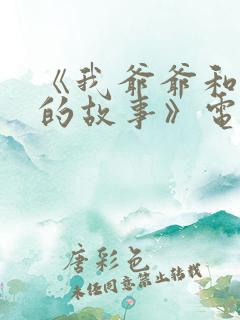 《我爷爷和
的故事》电
唐彩色
未经同意禁止转载